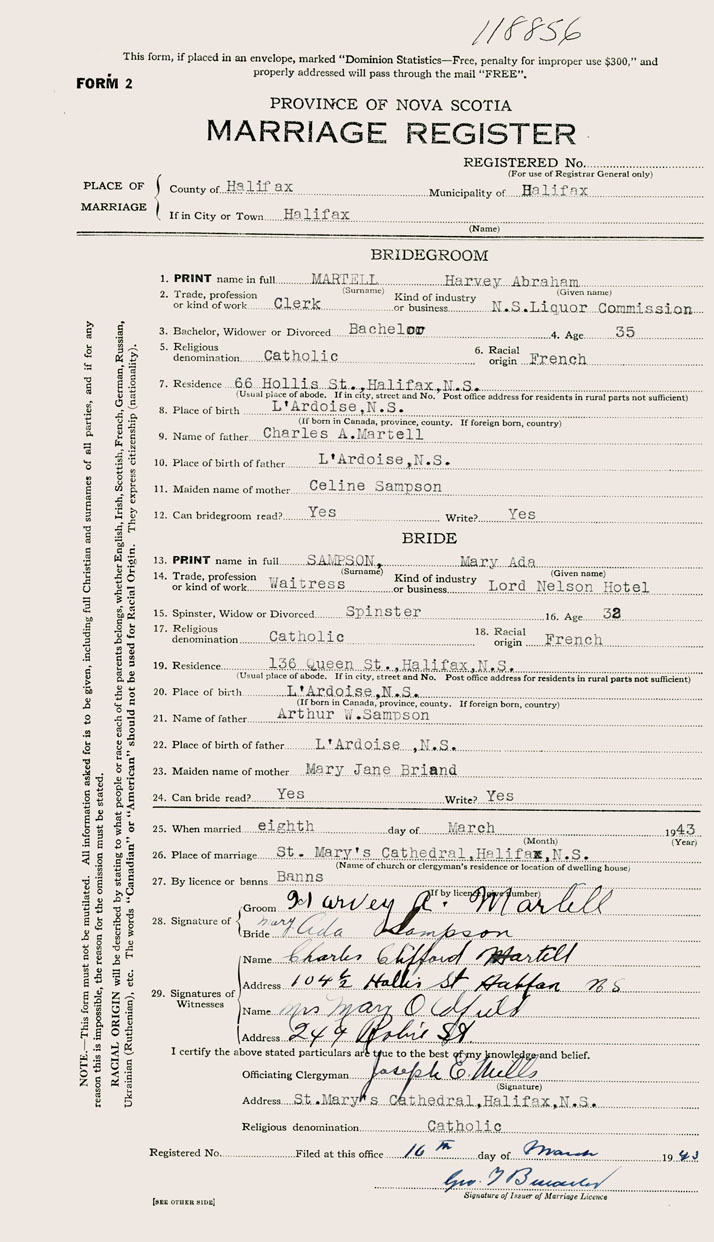 118856
This form, if placed in an envelope, marked "Dominion Statistics—Free, penalty for improper use $300," and
properly addressed will pass through the mail "FREE".
FORM 2
PROVINCE OF NOVA SCOTIA
MARRIAGE REGISTER
REGISTERED No.
(For use of Registrar General only)
PLACE OF MARRIAGE
County of Halifax Municipality of Halifax
If in City or Town Halifax
(Name)
BRIDEGROOM
1. PRINT name in full MARTELL Harvey Abraham
(Surname) (Given name)
2. Trade, profession or kind of work Clerk Kind of industry or business N.S.Liquor Commission
3. Bachelor, Widower or Divorced Bachelor 4. Age 35
5. Religious denomination Catholic 6. Racial origin French
7. Residence 66 Hollis St.,Halifax,N.S.
(Usual place of abode. If in city, street and No. Post office address for residents in rural parts not sufficient)
8. Place of birth L'Ardoise,N.S.
(If born in Canada, province, county. If foreign born, country)
9. Name of father Charles A.Martell
10. Place of birth of father L'Ardoise,N.S.
11. Maiden name of mother Celine Sampson
12. Can bridegroom read? Yes Write? Yes
BRIDE
13. PRINT name in full SAMPSON, Mary Ada
(Surname) (Given name)
14. Trade, profession or kind of work Waitress Kind of industry or business Lord Nelson Hotel
15. Spinster, Widow or Divorced Spinster 16. Age 32
17. Religious denomination Catholic 18. Racial origin French
19. Residence 136 Queen St.,Halifax,N.S.
(Usual place of abode. If in city, street and No. Post office address for residents in rural parts not sufficient)
20. Place of birth L'Ardoise,N.S.
(If born in Canada, province, county. If foreign born, country)
21. Name of father Arthur W.Sampson
22. Place of birth of father L'Ardoise ,N.S.
23. Maiden name of mother Mary Jane Briand
24. Can bride read? Yes Write? Yes
25. When married eighth day of March 1943
(Month) (Year)
26. Place of marriage St. Mary's Cathedral,Halifax,N.S.
(Name of church or clergyman's residence or location of dwelling house)
27. By licence or banns Banns
(If by licence give number)
28. Signature of
Groom Harvey A. Martell
Bride Mary Ada Sampson
29. Signatures of Witnesses
Name Charles Clifford Martell
Address 104½ Hollis St Halifax N S
Name Mrs Mary Oldfield
Address 244 Robie St
I certify the above stated particulars are true to the best of my knowledge and belief.
Officiating Clergyman Joseph E. Mills
(Signature)
Address St.Mary's Cathedral,Halifax,N.S.
Religious denomination Catholic
Registered No. Filed at this office 16th day of March 1943
Geo. T
Signature of Issuer of Marriage Licence
[SEE OTHER SIDE]
NOTE.—This form must not be mutilated. All information asked for is to be given, including full Christian and surnames of all parties, and if for any
reason this is impossible, the reason for the omission must be stated.
RACIAL ORIGIN will be described by stating to what people or race each of the parents belongs, whether English, Irish, Scottish, French, German, Russian,
Ukrainian (Ruthenian), etc. The words "Canadian" or "American" should not be used for Racial Origin. They express citizenship (nationality).